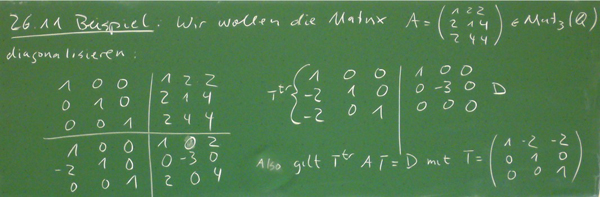 26.11 Beispiel: Wir wollen die Matrix A = ( 1 2 2 ∈ Mat₃(ℚ)
2 1 4
2 4 4 )
diagonalisieren:
1 0 0 | 1 2 2
0 1 0 | 2 1 4
0 0 1 | 2 4 4
1 0 0 | 1 0 2
-2 1 0 | 0 -3 0
0 0 1 | 2 0 4
T^tr { 1 0 0 | 1 0 0
-2 1 0 | 0 -3 0 D
-2 0 1 | 0 0 0
Also gilt T^tr A T = D mit T = ( 1 -2 -2
0 1 0
0 0 1 )